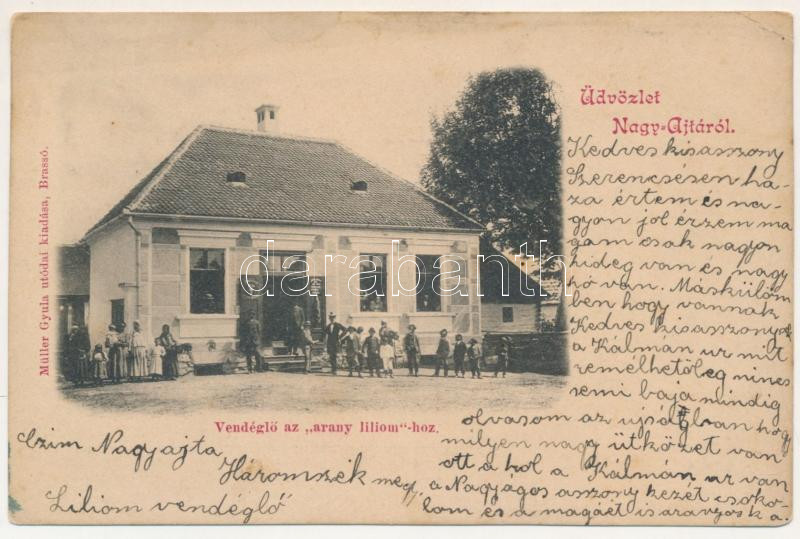 Müller Gyula utódai kiadása, Brassó.
Üdvözlet
Nagy-Ajtáról.
Kedves kisasszony
Szerencsésen ha-
za értem és na-
gyon jol érzem ma
gam csak nagyon
hideg van és nagy
hó van. Máskülöm
ben hogy vannak
Kedves kisasszony
a Kálmán ur mit
remelhetőleg nincs
semi baja mindig
olvasom az ujságban hogy
milyen nagy ütközet van
ott a hol a Kálmán ur van
a Nagyságos asszony kezét csoko-
lom és a magáét is
darabanth
Vendéglő az „arany liliom"-hoz.
Czim Nagyajta
Háromszék meg.
Liliom vendéglő